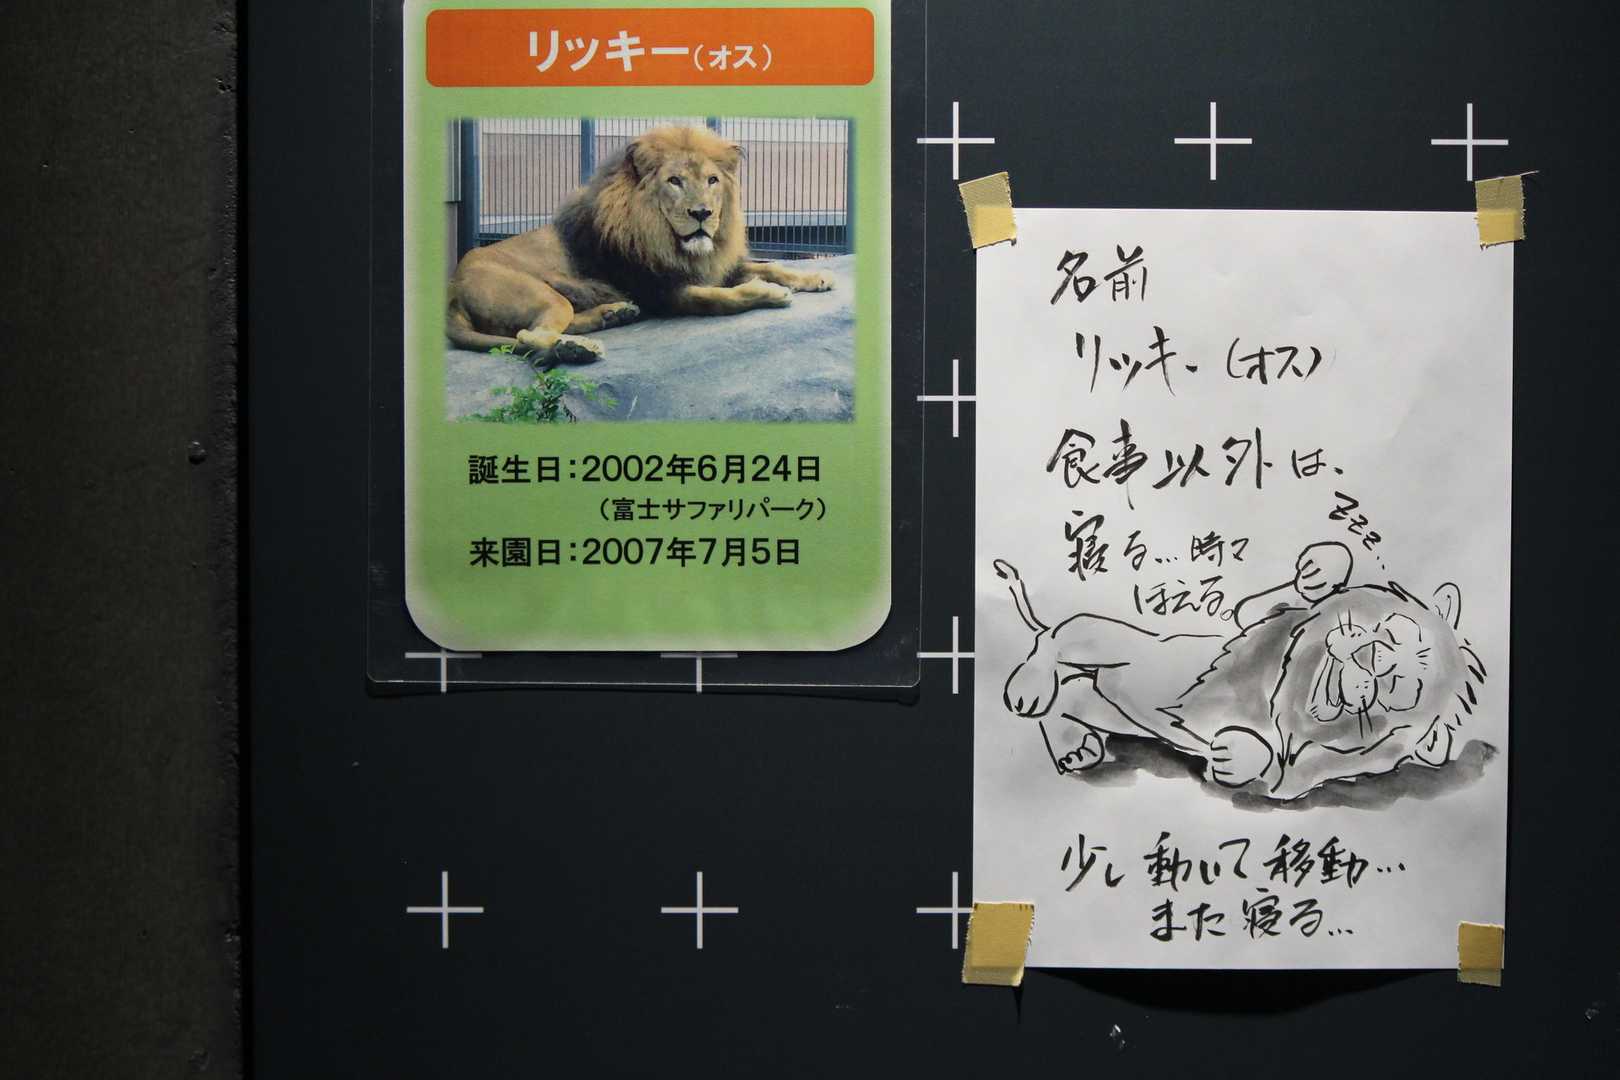 リッキー（オス）
誕生日：2002年6月24日
（富士サファリパーク）
来園日：2007年7月5日
名前
リッキー（オス）
食事以外は、
zzz...
寝る…時々
ほえる。
少し動いて移動…
また寝る…